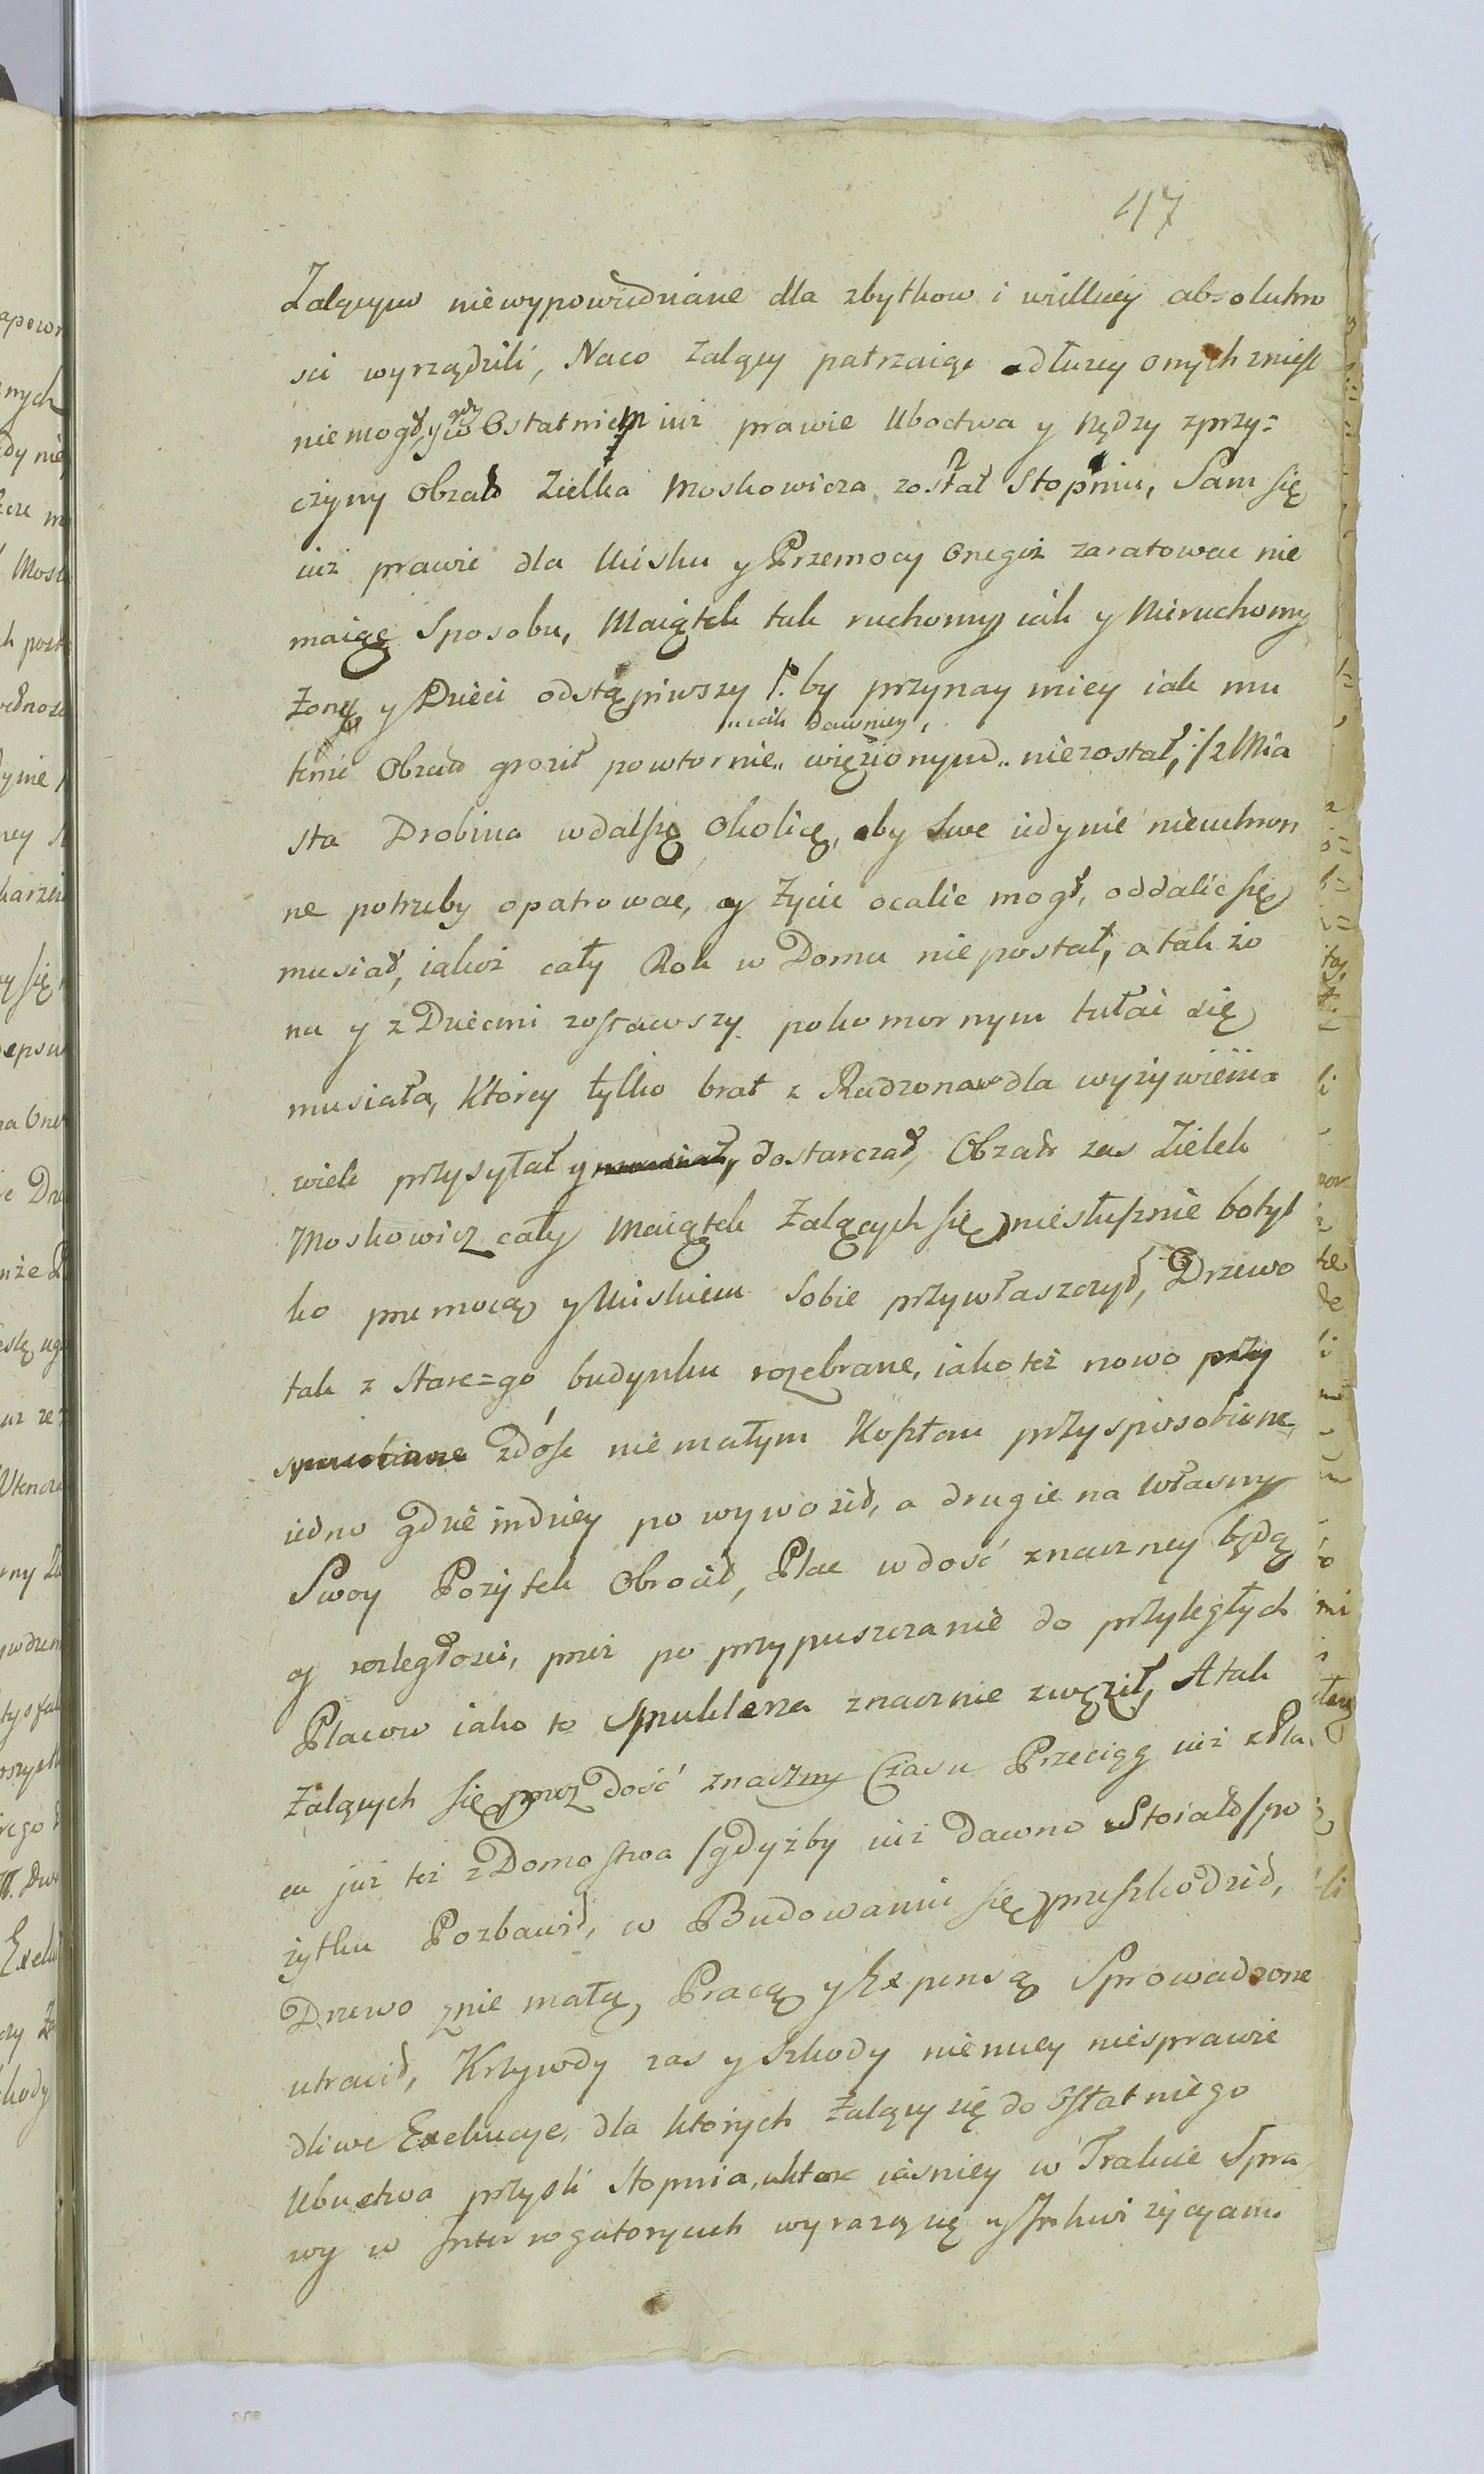 417
Żalącym niewypowiedziane dla zbytkow i wielkiey absolutno
sci wyrządzili, Naco żalący patrzaiąc dłużey onych zniesc
niemogł, y gdy w Ostatniem iuż prawie Uboctwa y Nędzy zprzy=
czyny Obzałd Zielka Moskowicza został Stopniu, Sam się
iuż prawie dla Ucisku y Przemocy Onegoż zaratowac nie
maiąc Sposobu, Maiątek tak ruchomy iak y Nieruchomy
żonę y Dzieci odstąpiwszy /: by przynaymiey iak mu
iak dawniey
tenie Obzałd groził powtornie więzionym niezostał, :/ z Mia
sta Drobina wdalszą Okolicę, aby swe iedynie nieuchron
ne potrzeby opatrowac, y życie ocalic mogł, oddalic się
musiał, iakoż cały Rok w Domu niepostał, a tak żo
na y z Dziecmi zostawszy pokomornym tułać się
musiała, Ktorey tylko brat z Radzonowa dla wyżywienia
wiele przysyłał y dostarczał, Obzałd zas Zielek
Moskowicz cały Maiątek żalących się niesłusznie botyl
ko przemocą y Uciskiem Sobie przywłaszczył, Drzewo
tak z Stare=go budynku rozebrane, iako też nowo przy
zdość niemałym Kosztem przysposobione,
iedno gdzieindziey powywoził, a drugie na własny
Swoy Pożytek Obrocił, Plac wdość znaczney będą
cy rozległosci, przez poprzypuszczanie do przyległych
Placow iako to Spuklerza znacznie zwęził, A tak
żalących się przez dość znaczny Czasu Przeciąg iuż z Pla
cu już też z Domostwa /gdyżby iuż dawno Stoiało/ po
żytku Pozbawił, w Budowaniu się przeszkodził,
Drzewo znie małą Pracą y Expensą Sprowadzone
utracił, Krzywdy zas y Szkody niemniey niesprawie
dliwe Exekucye, dla ktorych żalący się do Ostatniego
Ubuctwa przyszli Stopnia, ktore iasniey w Trakcie Spra
wy w Interrogatoryach wyrażą się y Inkwizycyam.